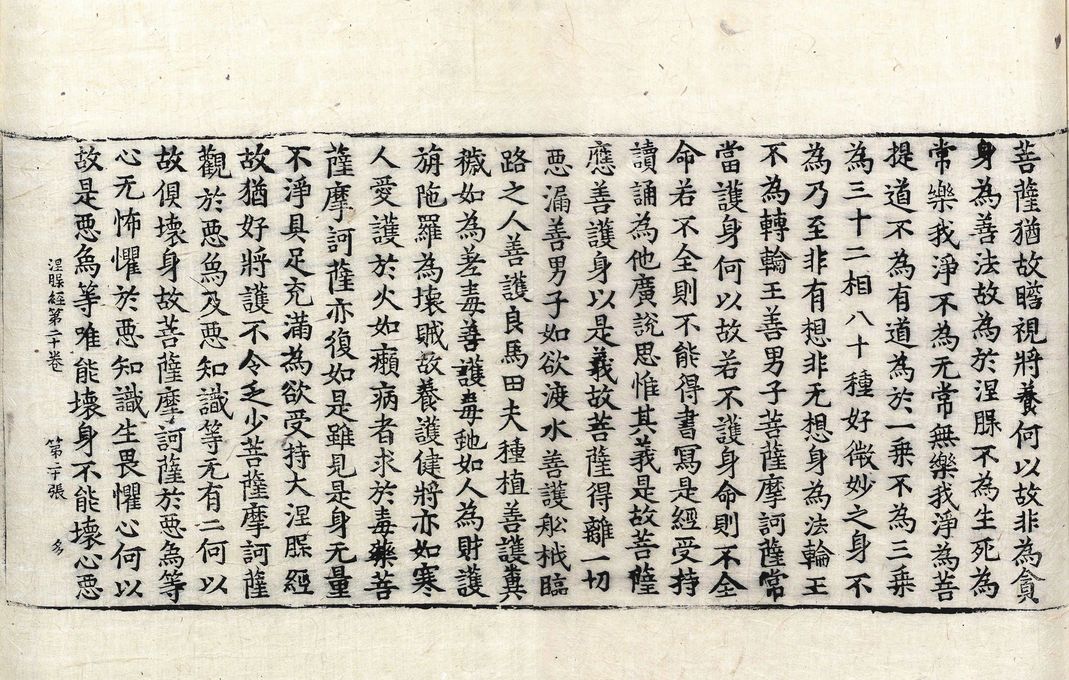 菩薩猶故瞻視將養何以故非為貪
身為善法故為於涅槃不為生死為
常樂我淨不為无常無樂我淨為菩
提道不為有道為於一乘不為三乘
為三十二相八十種好微妙之身不
為乃至非有想非无想身為法輪王
不為轉輪王善男子菩薩摩訶薩常
當護身何以故若不護身命則不全
命若不全則不能得書寫是經受持
讀誦為他廣說思惟其義是故菩薩
應善護身以是義故菩薩得離一切
悪漏善男子如欲渡水善護舩栰臨
路之人善護良馬田夫種植善護糞
穢如為差毒善護毒虵如人為財護
旃陁羅為壞賊故養護健將亦如寒
人愛護於火如癩病者求於毒藥菩
薩摩訶薩亦復如是雖見是身无量
不淨具足充滿為欲受持大涅槃經
故猶好將護不令乏少菩薩摩訶薩
觀於悪象及悪知識等无有二何以
故俱壞身故菩薩摩訶薩於悪象等
心无怖懼於悪知識生畏懼心何以
故是悪象等唯能壞身不能壞心悪
涅槃經第二十卷 第二十張 多